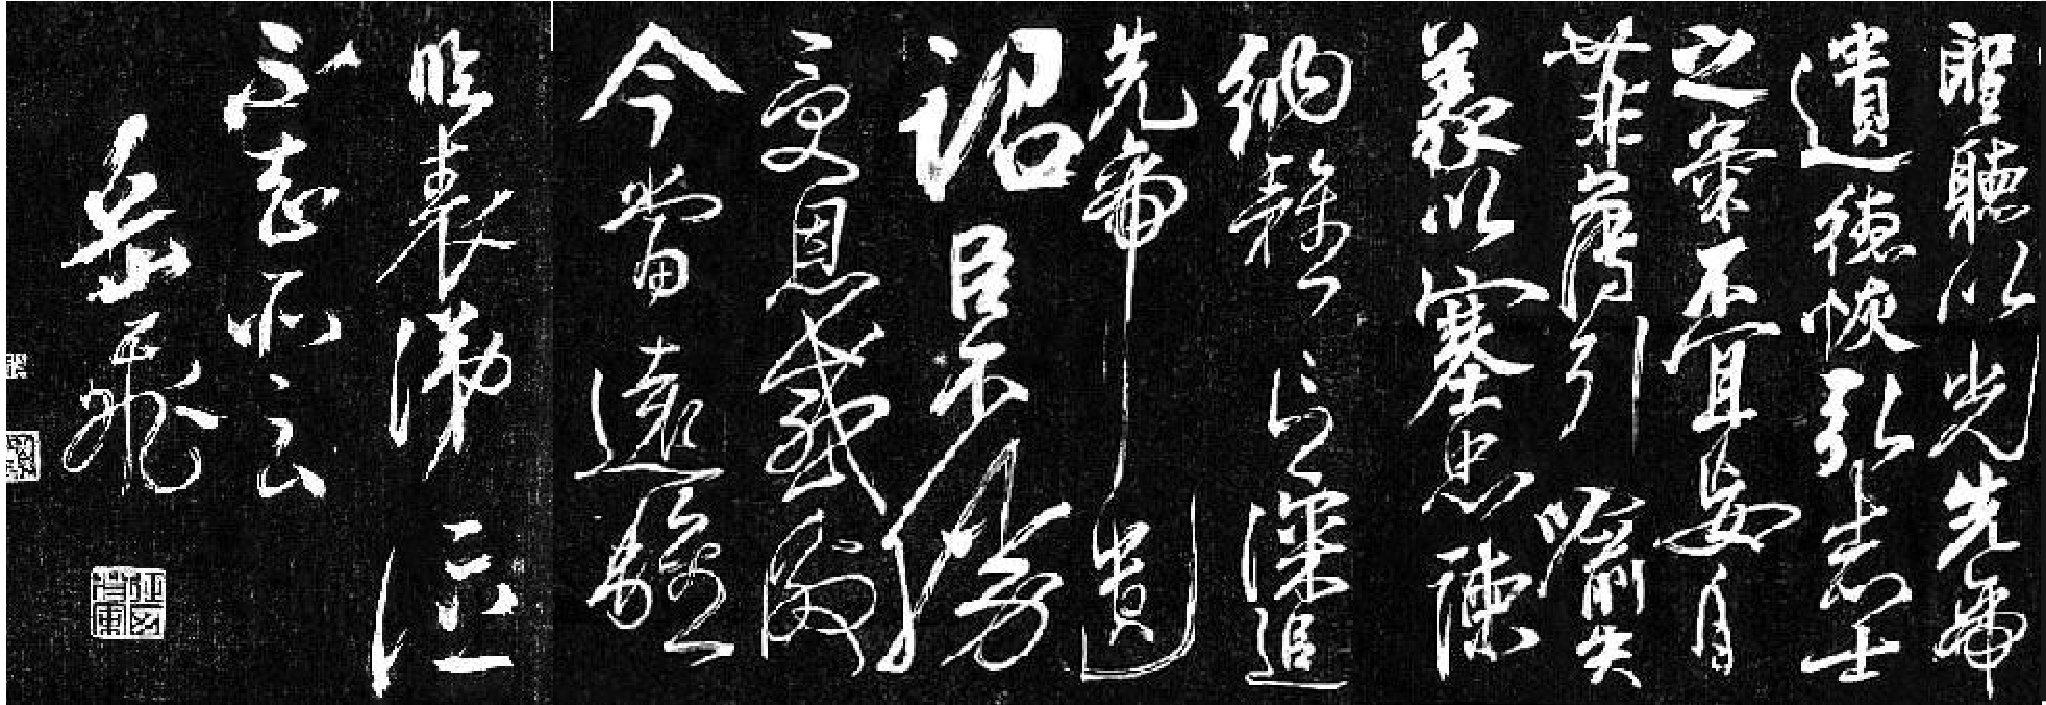 聖聽以光先帝
遺德恢弘志士
之氣不宜妄自
菲薄引喻失
義以塞忠諫
納雅言深追
先帝遺
詔臣不勝
受恩感激
今當遠離
臨表涕泣
不知所云
岳飛